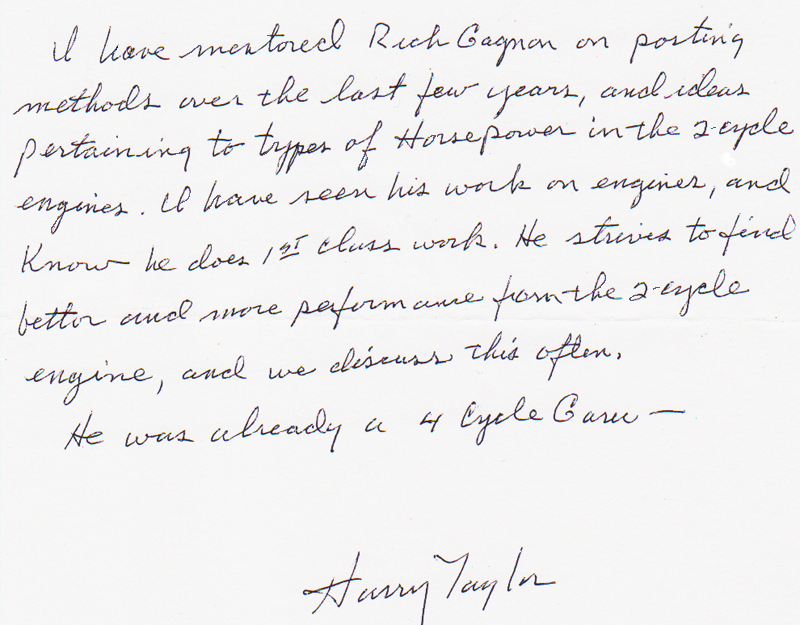 I have mentored Rich Gagnon on posting
methods over the last few years, and ideas
pertaining to types of Horsepower in the 2-cycle
engines. I have seen his work on engines, and
Know he does 1ST class work. He strives to find
better and more performance from the 2-cycle
engine, and we discuss this often.
He was already a 4 Cycle Garu —
Harry Taylor